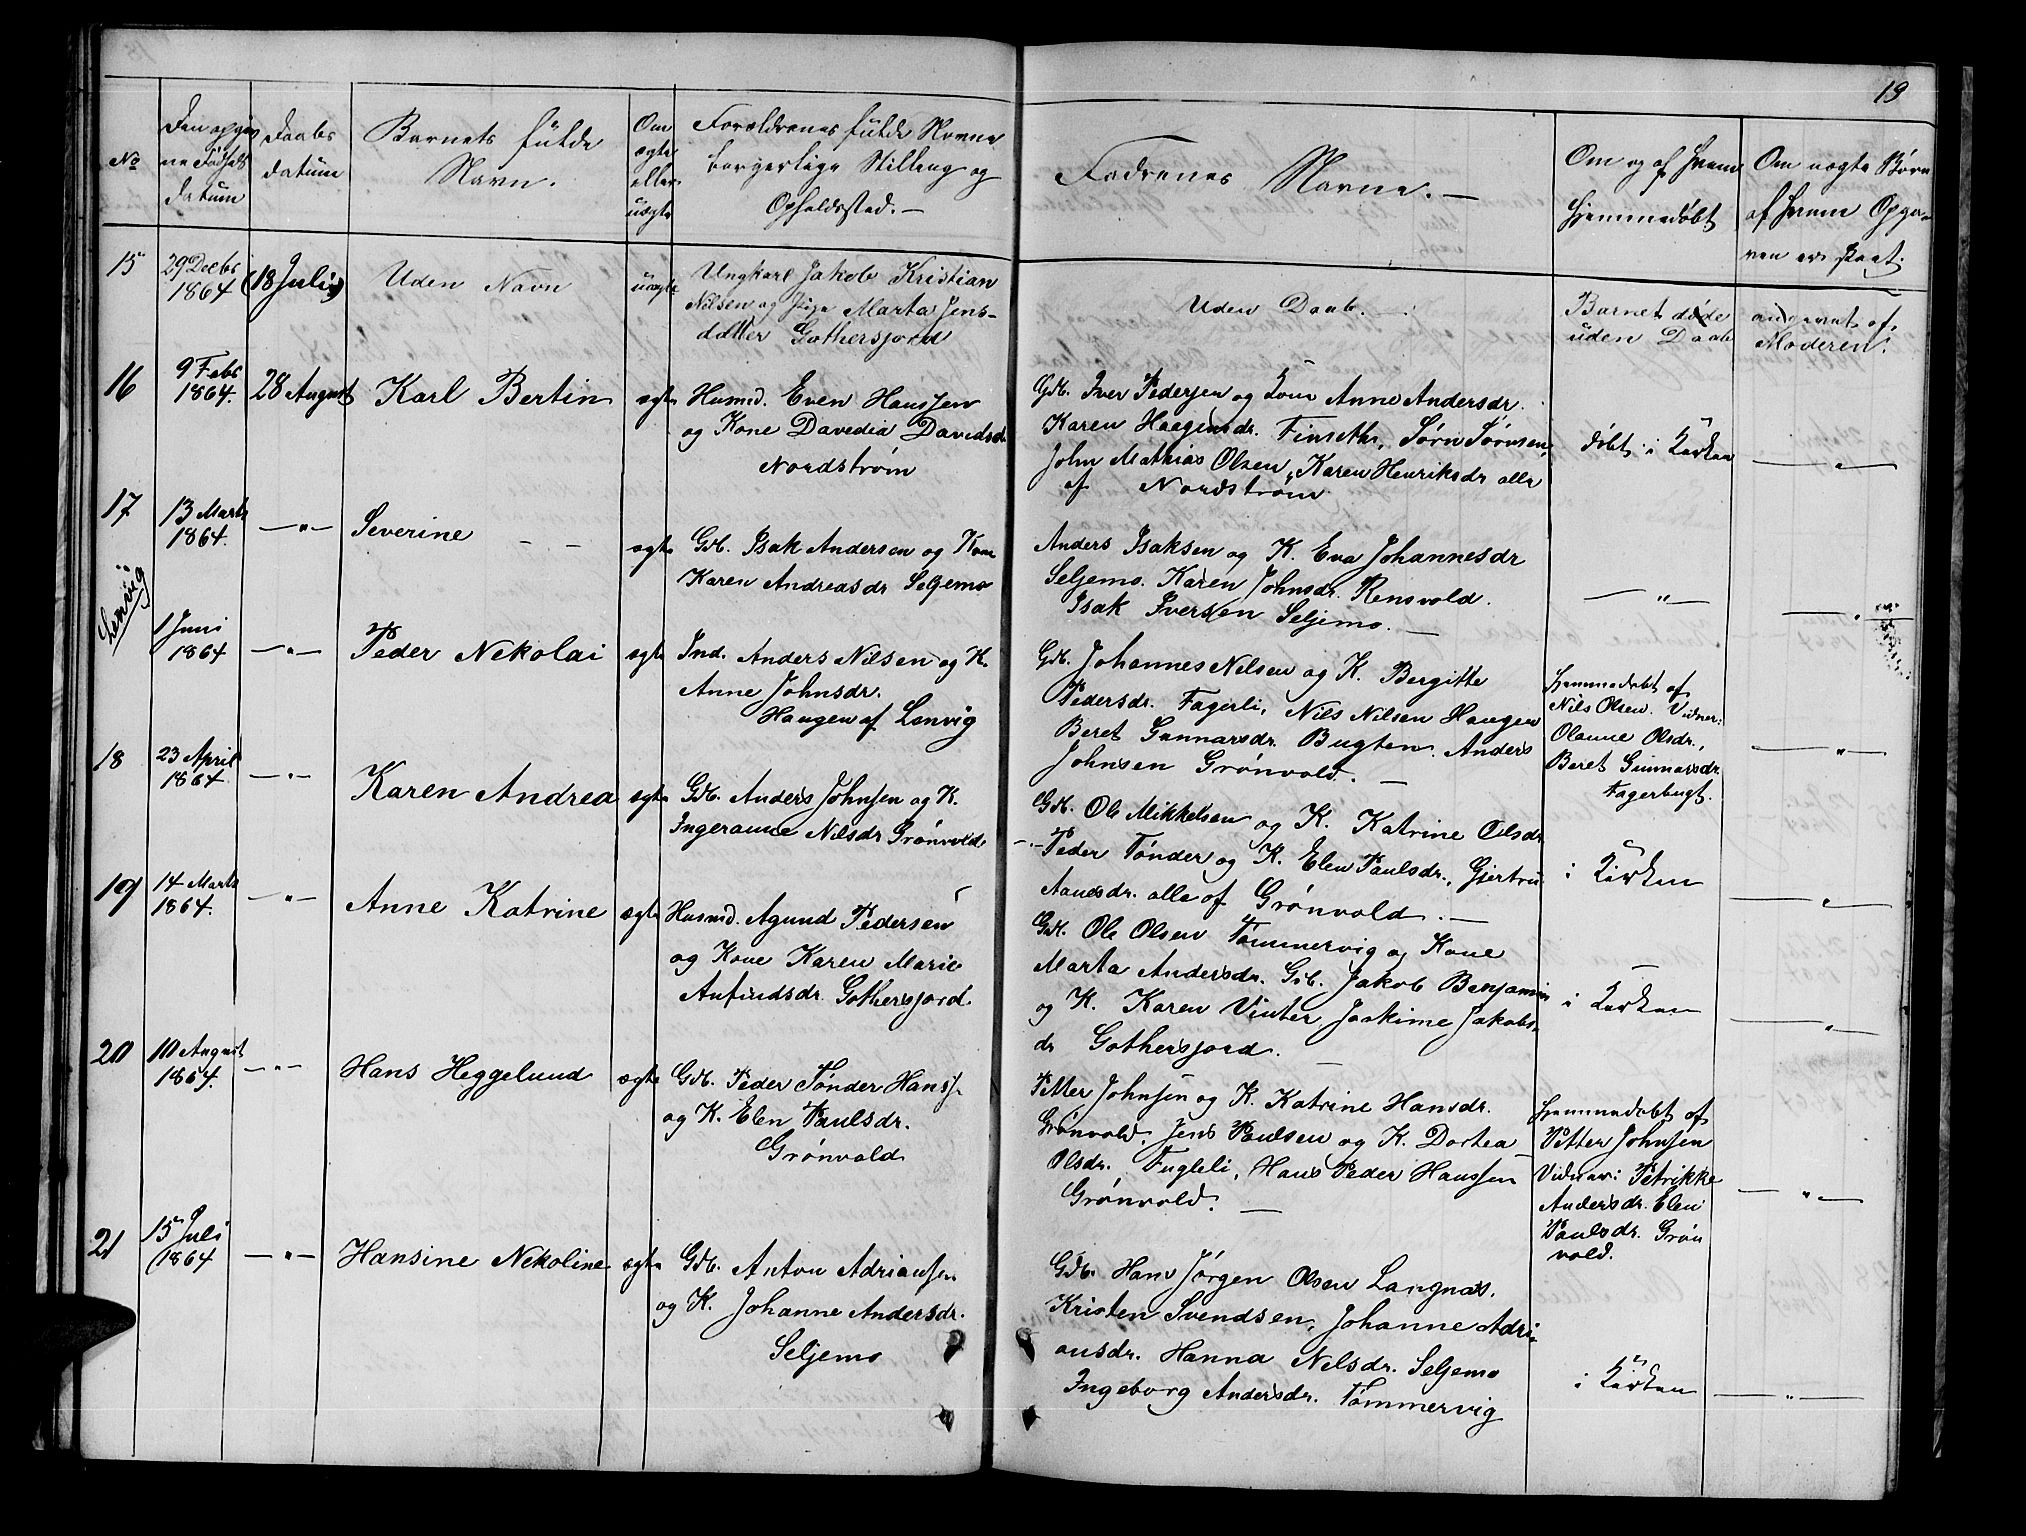 19
No
Den opgivne Fødsels datum
Daabs datum
Barnets fulde Navn.
Om ægte eller uægte
Forældrenes fulde Navne borgerlige Stilling og Opholdssted. —
Fadrenes Navne. —
Om og af hvem hjemmedøbt
Om uægte Børn af hvem Opgaven er skeet.
15
29 Decbr 1864
(18 Juli)
Uden Navn
uægte
Ungkarl Jakob Kristian
Nilsen og Pige Marta Jens-
datter Gothersjord
Uden Daab. —
Barnet døde
uden Daab
angivet af
Moderen.
16
9 Febr 1864.
28 August
Karl Bertin
ægte
Husmd. Even Hanssen
og Kone Davedia Davidsdr
Nordstrøm
Gdb. Iver Pedersen og Kone Anne Andersdr.
Karen Haagensdr. Finseth, Sørn Sørnsen,
John Mathias Olsen, Karen Henriksdr alle
af Nordstrøm
døbt i Kirken
— " —
17
13 Marts 1864.
— " —
Severine — —
ægte
Gdb. Isak Andersen og Kone
Karen Andreasdr Seljemo
Anders Isaksen og K. Eva Johannesdr
Seljemo. Karen Johnsdr. Rensvold.
Isak Iversen Seljemo. —
— " —
— " —
Lenvig
1 Juni 1864
— " —
Peder Nekolai
ægte
Ind. Anders Nilsen og K.
Anne Johnsdr.
Haugen af Lenvig
Gdb. Johannes Nelsen og K. Bergitte
Pedersdr. Fagerli, Nils Nilsen Haugen
Beret Gunnarsdr. Bugten. Anders
Johnsen Grønvold. —
Hjemmedøbt af
Nils Olsen. Vidner:
Olanne Olsdr.,
Beret Gunnarsdr.
Fagerbugt.
— " —
18
23 April 1864
— " —
Karen Andrea
ægte
Gdb. Anders Johnsen og K.
Ingeranne Nilsdr Grønvold
Gdb. Ole Mikkelsen og K. Katrine Olsdr
Peder Tønder og K. Elen Paulsdr., Gjertru
Aanesdr. alle af Grønvold. —
i Kirken
— " —
19
14 Marts 1864.
— " —
Anne Katrine
ægte
Husmd. Agund Pedersen
og Kone Karen Marie
Anfindsdr. Gothersjord.
Gdb. Ole Olsen Tømmervig og Kone
Marta Andersdr. Gdb. Jakob Benjamin
og K. Karen Vinter Joakime Jakobs-
dr Gothersjord. —
i Kirken
— " —
20
10 August 1864.
— " —
Hans Heggelund
ægte
Gdb. Peder Tønder Hanss.
og K. Elen Paulsdr.
Grønvold
Petter Johnsen og K. Katrine Hansdr.
Grønvold. Jens Paulsen og K. Dortea
Olsdr. Fugleli, Hans Peder Hanssen
Grønvold. —
Hjemmedøbt af
Petter Johnsen
Vidner: Petrikke
Andersdr. Elen
Paulsdr. Grøn
vold.
— " —
21
15 Juli 1864
— " —
Hansine Nekoline
ægte
Gdb. Anton Adriansen
og K. Johanne Andersdr.
Seljemo
Gdb. Hans Jørgen Olsen Langnæs.
Kristen Svendsen, Johanne Adri-
ansdr. Hanna Nelsdr. Seljemo
Ingeborg Andersdr. Tømmervig
i Kirken
— " —